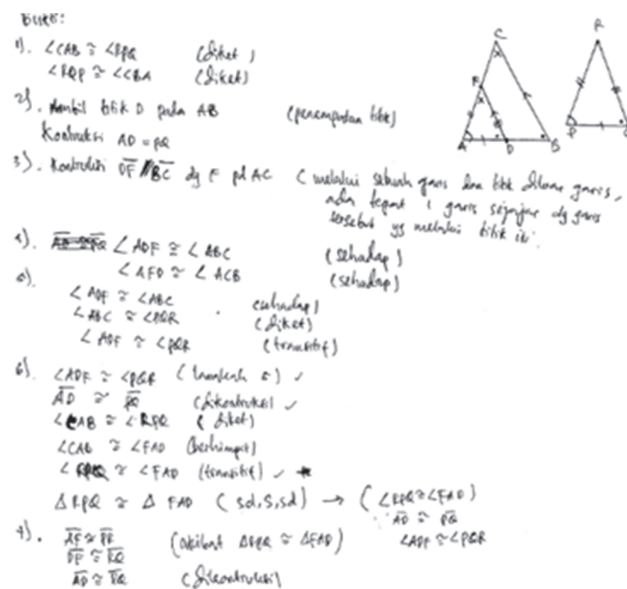 Bukti:
1). ∠CAB ≅ ∠RPQ (diket)
∠RQP ≅ ∠CBA (diket)
2). Ambil titik D pada AB (penempatan titik)
Kontruksi AD = PQ
3). Kontruksi DF // BC dg F pd AC (melalui sebuah garis dan titik diluar garis,
ada tepat 1 garis sejajar dg garis
tersebut yg melalui titik itu.
4). ∠ADF ≅ ∠ABC (sehadap)
∠AFD ≅ ∠ACB (sehadap)
5). ∠ADF ≅ ∠ABC (sehadap)
∠ABC ≅ ∠PQR (diket)
∠ADF ≅ ∠PQR (transitif)
6). ∠ADF ≅ ∠PQR (langkah 5) ✓
AD ≅ PQ (dikontruksi) ✓
∠CAB ≅ ∠RPQ (diket)
∠CAB ≅ ∠FAD (berhimpit)
∠RPQ ≅ ∠FAD (transitif) ✓
Δ RPQ ≅ Δ FAD (sd, s, sd) → (∠RPQ ≅ ∠FAD)
AD ≅ PQ
∠ADF ≅ ∠PQR
7). AF ≅ PR (akibat ΔRPQ ≅ ΔFAD)
DF ≅ RQ
AD ≅ PQ (dikontruksi)
C
F
A D B
R
P Q